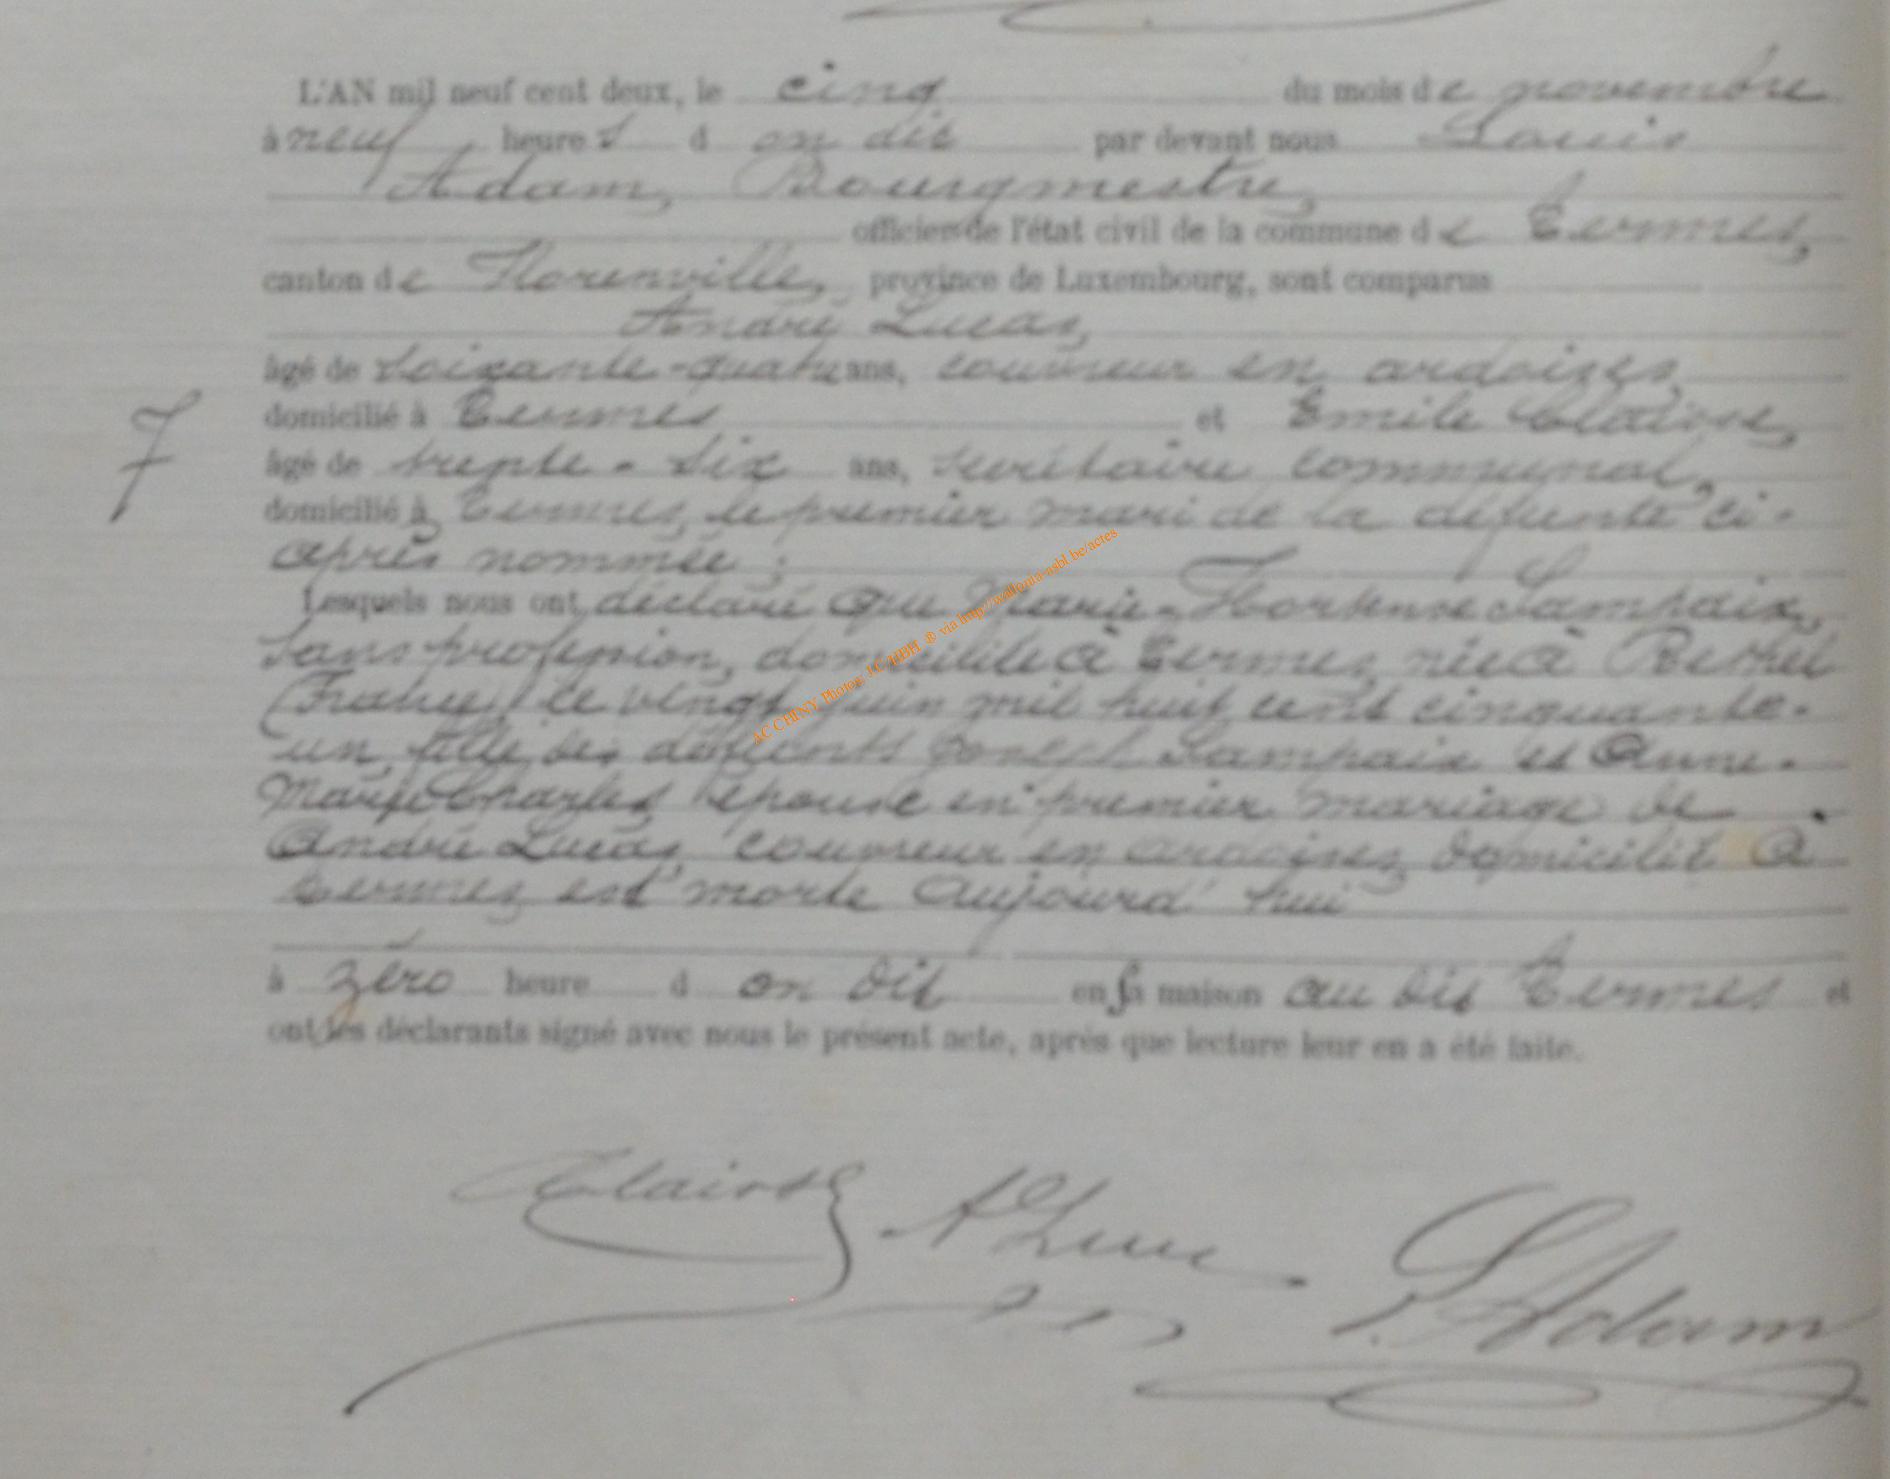 L'AN mil neuf cent deux, le cinq du mois de novembre
à neuf heures d on dit par devant nous Louis
Adam, Bourgmestre,
officier de l'état civil de la commune de Termes,
canton de Florenville, province de Luxembourg, sont comparus
André Lucas,
âgé de soixante-quatre ans, couvreur en ardoises,
domicilié à Termes et Emile Clairsse,
7
âgé de trente-six ans, secrétaire communal,
domicilié à Termes, le premier mari de la défunte ci-
après nommée ;
Lesquels nous ont déclaré que Marie-Hortense Lampaix,
sans profession, domiciliée à Termes, née à Rethel
(France) le vingt juin mil huit cent cinquante-
un, fille des défunts Joseph Lampaix et Anne-
Marie Charles épouse en premier mariage de
André Lucas, couvreur en ardoises domicilié à
Termes est morte aujourd'hui
à zéro heure d on dit en sa maison au dit Termes et
ont les déclarants signé avec nous le présent acte, après que lecture leur en a été faite.
A Luc
L. Adam
AC CHINY Photos J.C HBH ® via http://wallonia-asbl.be/actes